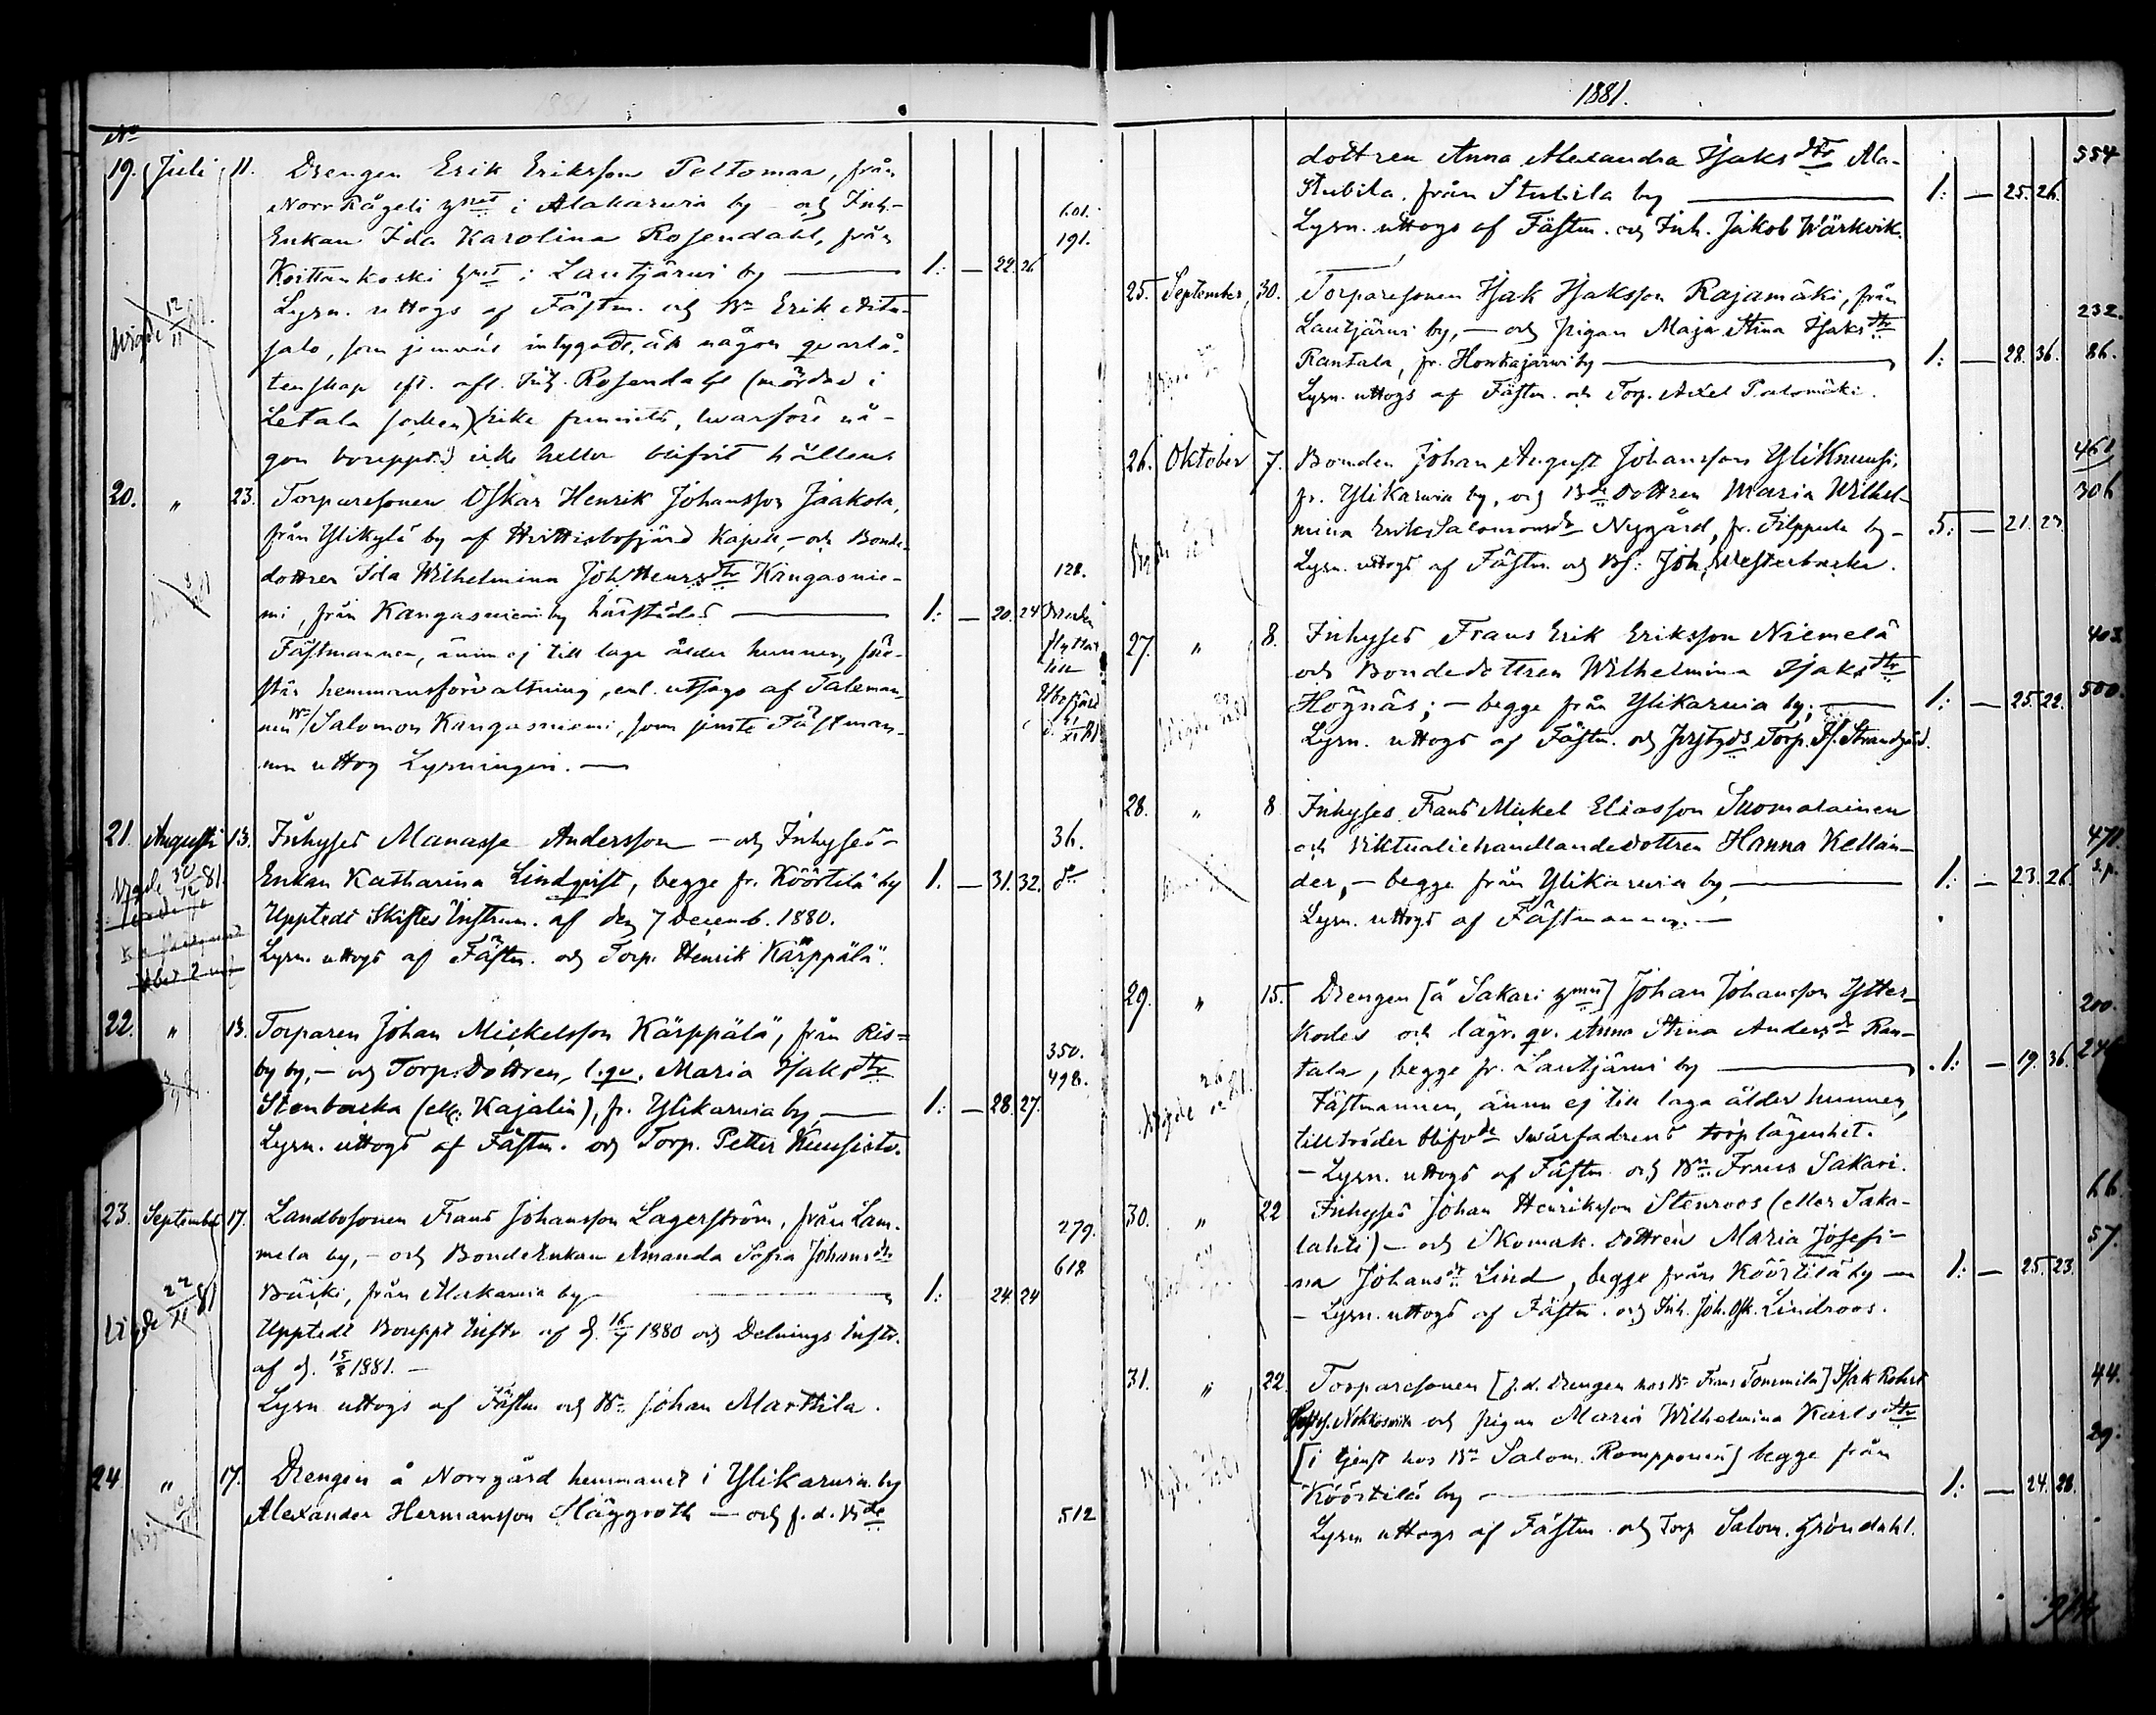 No
19. Juli 11. Drengen Erik Eriksson Peltomaa, från
Norr Rågeli i Alakarvia by och Inh.- 101.
Enkan Ida Karolina Rosendahl, från 191.
Koittankoski i Lautjärvi by — 1: — 22. 26
Lysn. uttogs af Fästm. och Bn Erik
salo, som jemväl intygade, att någon qvarlå-
tenskap eft. afl. Inh. Rosendahl (mördad i
Letala socken) icke funnits, hvarföre nå-
gon bouppt. icke heller blifvit hållen
Vigde 12/11
20. " 23. Torparesonen Oskar Henrik Johansson Jaakola,
från Ylikylä by af Hvittisbofjärd Kapell, och Bonde-
dottren Ida Wilhelmina Joh. Henrsdtr Kangasnie- 128.
mi, från Kangasniemi by härstädes — 1: — 20. 24
Fästmannen, ännu ej till laga ålder hunnen, före-
står hemmansförvaltning, enl. utsago af Taleman-
nen Bn Salomon Kangasniemi, som jemte Fästman-
nen uttog Lysningen. —
21. Augusti 13. Inhyses Manasse Andersson — och Inhyses- 36.
Enkan Katharina Lindqvist, begge fr. Köörtilä by 1. — 31. 32. do
Uppteds Skiftes Instrum. af den 7 Decemb. 1880.
Lysn. uttogs af Fästm. och Torp. Henrik Kärppälä.
Vigde 30/12 81.
22. " 13. Torparen Johan Mickelsson Kärppälä, från Ris=
by by, — och Torp. Dottren, l. qv. Maria Isaksdtr 350.
Stenbacka (ell. Kajalin), fr. Ylikarvia by — 1: — 28. 27. 498.
Lysn. uttogs af Fästm. och Torp. Petter Kuusisto.
23. September 17. Landbosonen Frans Johansson Lagerström, från Lam-
mela by, — och BondeEnkan Amanda Sofia Johansdr 279.
Bäski, från Alakarvia by — 1: 24. 24 618
Uppteds Bouppt Instr af d. 16/7 1880 och Delnings Instr.
af d. 15/8 1881. —
Lysn uttogs af Fästm och Bn Johan Marttila.
Vigde 22/11 81
24 " 17. Drengen å Norrgård hemmanet i Ylikarvia by
Alexander Hermansson Släggroth — och f. d. Bde 512
1881.
dottren Anna Alexandra Isaksdtr Ala- 554
Stubila. från Stubila by — 1: — 25. 26.
Lysn. uttogs af Fästm. och Inh. Jakob Wärkvik.
25. September 30. Torparesonen Isak Isaksson Rajamäki, från
Lautjärvi by, — och pigan Maja Stina Isaksdtr 232.
Rantala, fr. Honkajärvi by — 1: — 28. 36. 86.
Lysn. uttogs af Fästm. och Torp. Axel Palomäki.
26. Oktober 7. Bonden Johan August Johansson Yliknuusi, 461
fr. Ylikarvia by, och Bde Dottren Maria Wilhel- 306
mina Erik Salomonsdr Nygård, fr. Filppula by - 5: — 21. 23.
Lysn. uttogs af Fästm. och Bs: Joh. Westerbacka.
27. " 8. Inhyses Frans Erik Eriksson Niemelä 403.
och Bondedottren Wilhelmina Isaksdtr
Högnäs; — begge från Ylikarvia by; — 1: — 25. 22. 500.
Lysn. uttogs af Fästm. och Torp. Strandgård.
28. " 8 Inhyses Frans Mickel Eliasson Suomalainen
och Viktualiehandlandedottren Hanna Kellan- 471.
der, — begge från Ylikarvia by, — 1: — 23. 26.
Lysn. uttogs af Fästmannen. —
29. " 15. Drengen [å Sakari] Johan Johansson Ytter-
Kodes och lägr. qv. Anna Stina Andersdr Ran- 200.
tala, begge fr. Lautjärvi by — 1: — 19. 36.
Fästmannen, ännu ej till laga ålder hunnen,
tillträder blifvde Svärfadrens torplägenhet.
— Lysn. uttogs af Fästm och Bn Frans Sakari.
30. " 22 Inhyses Johan Henriksson Stenroos (eller Taka- 66.
lahti) — och Skomak. dottren Maria Josefi- 57.
na Johansdr Lind, begge från Köörtilä by — 1: — 25. 23.
— Lysn. uttogs af Fästm. och Inh. Joh. Osk. Lindroos.
31. " 22. Torparesonen [f. d. Drengen hos Bn Frans Tommila] Isak Robert 44.
och pigan Maria Wilhelmina Karlsdtr
[i tjenst hos Bn Salom. Rompponen] begge från 29.
Köörtilä by — 1: — 24. 28.
Lysn uttogs af Fästm och Torp Salom. Gröndahl.